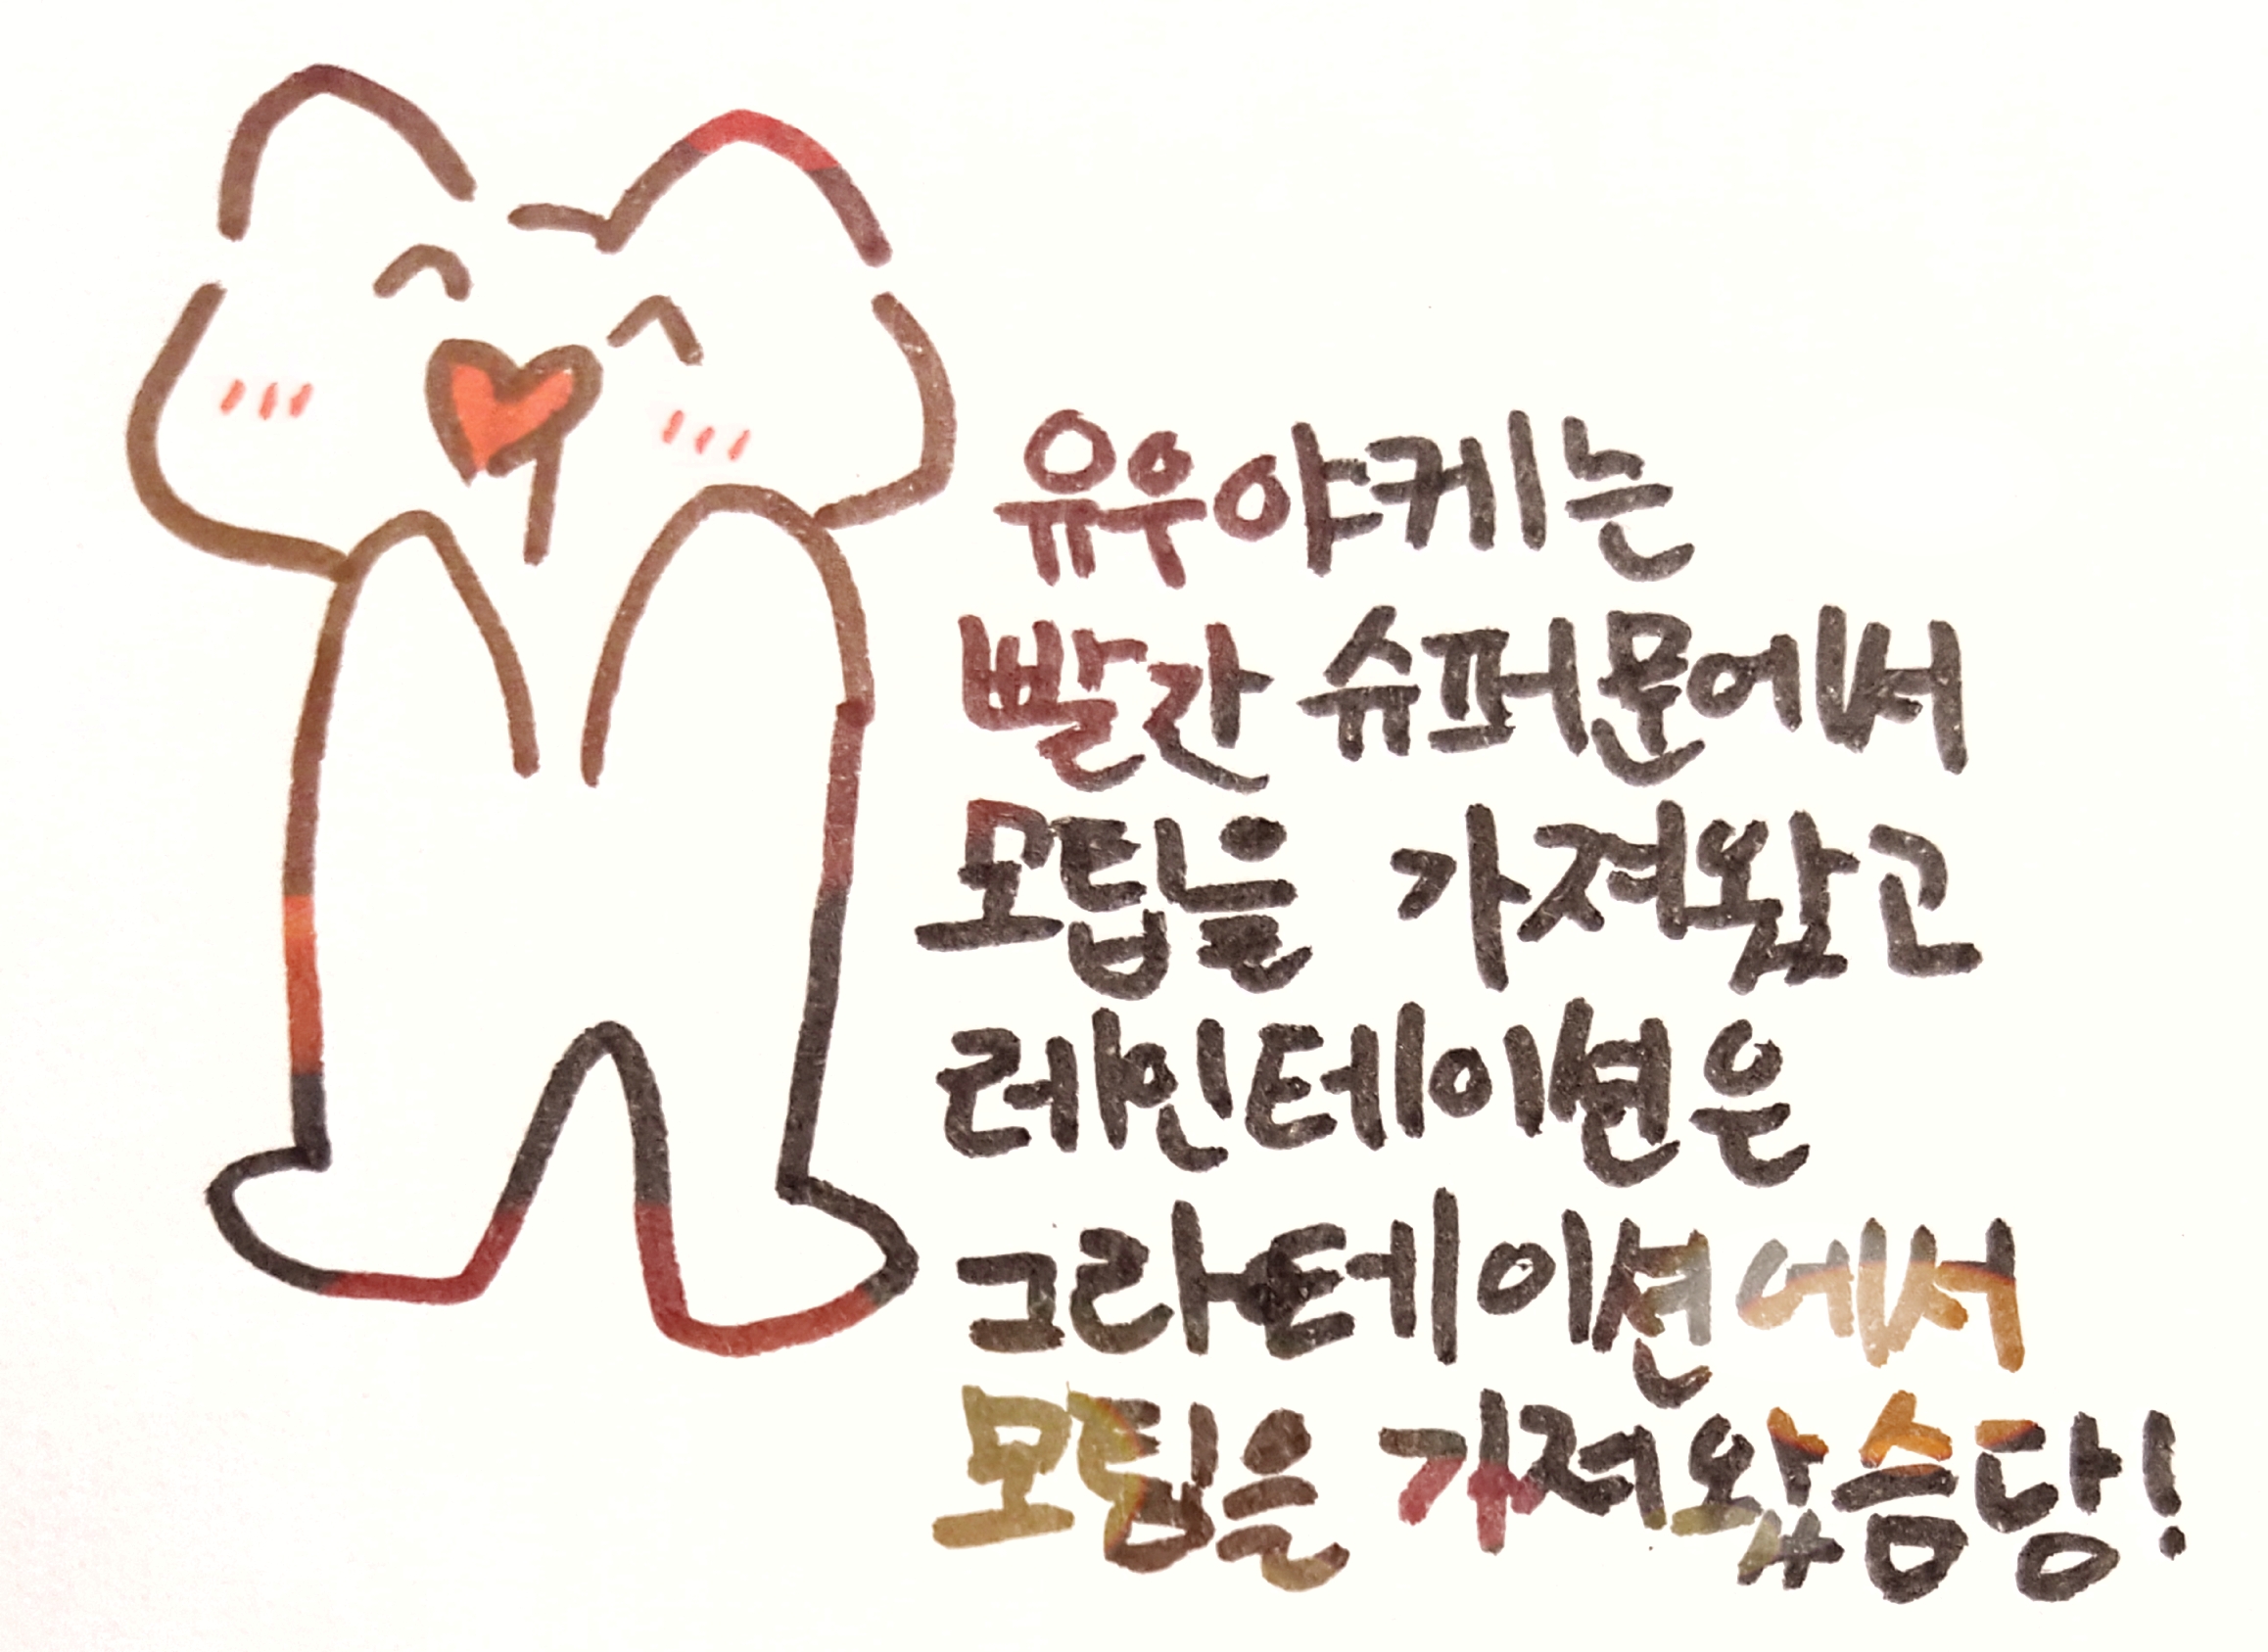 유우야케는
빨간 슈퍼문에서
모팁을 가져왔고
레인테이션은
그라테이션에서
모팁을 가져왔슴당!